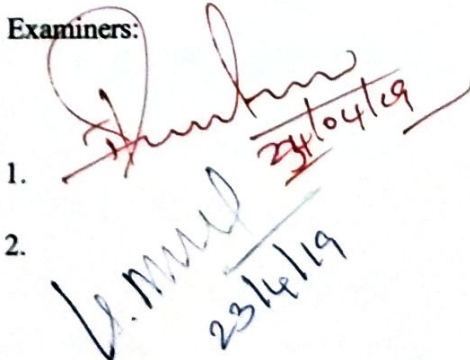 Examiners:
24/04/19
1.
2.
23/4/19